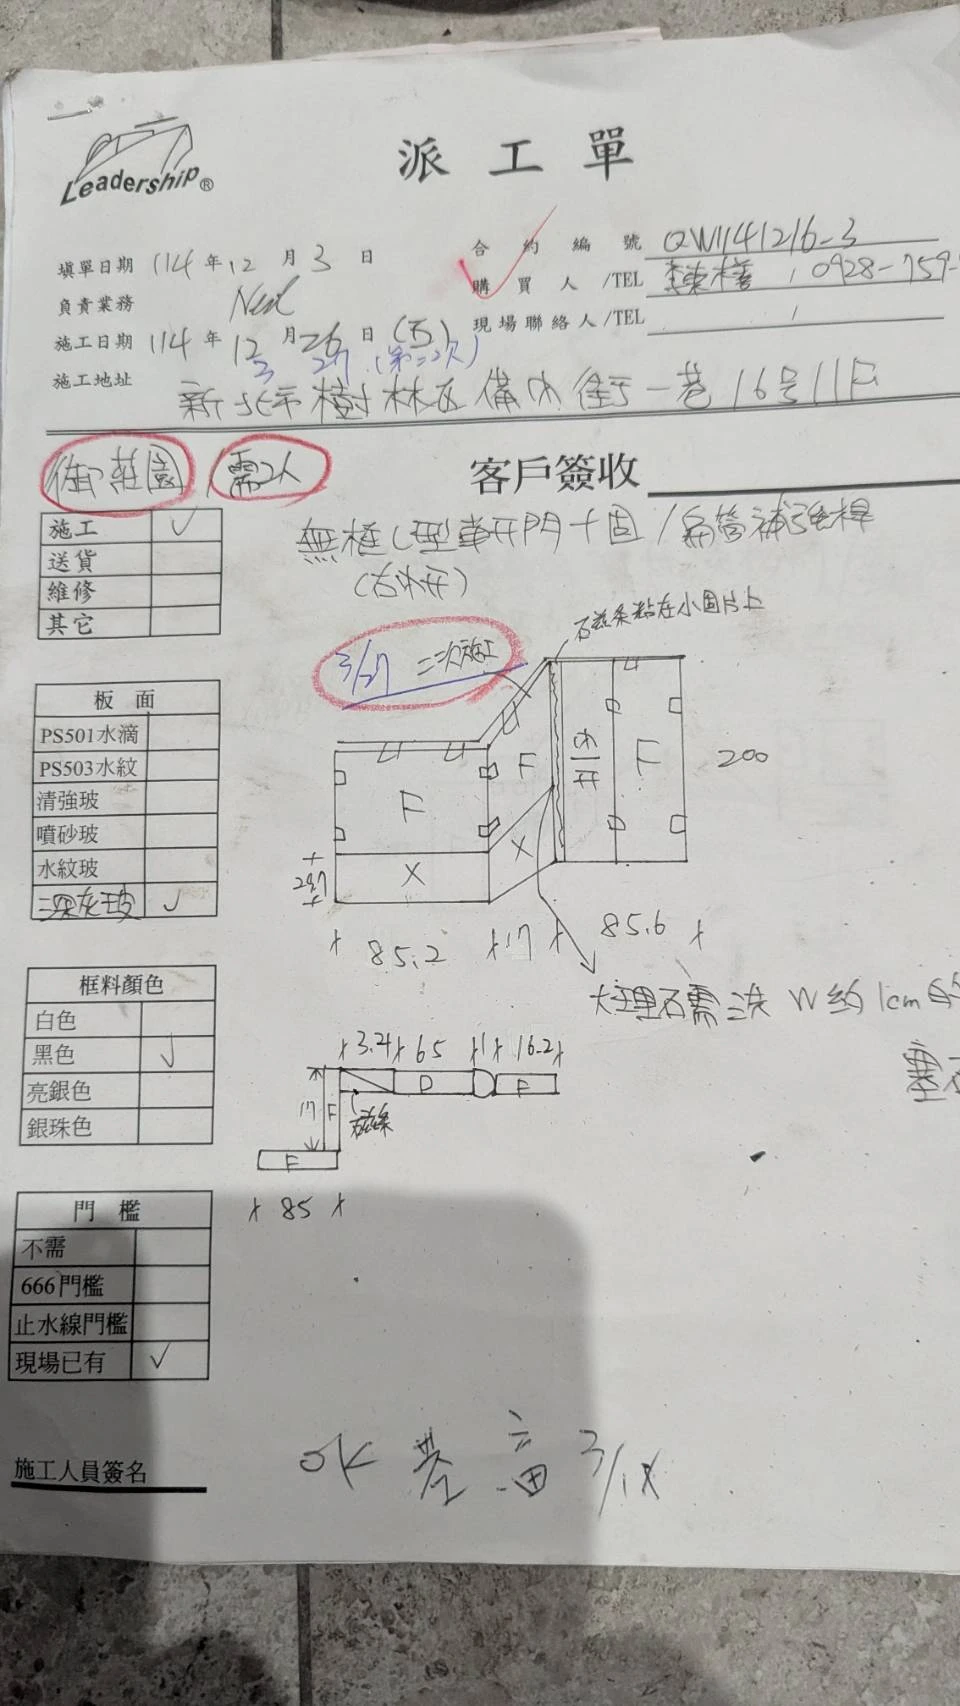 Leadership®
派工單
填單日期 114年12月3日
合約編號 QW1141216-3
負責業務 Ned
購買人/TEL 0928-759-
施工日期 114年12月26日(五)
3 27 (第二次)
現場聯絡人/TEL
施工地址 新北市樹林區備內街一巷16号11F
御莊園 需2人
客戶簽收
施工 ✓
送貨
維修
其它
無框L型單開門+固/扁管補強桿
(右外开)
磁条粘在小固片上
3/27 二次施工
板面
PS501水滴
PS503水紋
清強玻
噴砂玻
水紋玻
深灰玻 ✓
F F 外开 F 200
X X
28.7
85.2 17 85.6
大理石需洗 W約1cm的
塞
框料顏色
白色
黑色 ✓
亮銀色
銀珠色
3.4 65 1 16.2
D F
17 F 磁条
F
85
門檻
不需
666門檻
止水線門檻
現場已有 ✓
施工人員簽名
OK 3/18